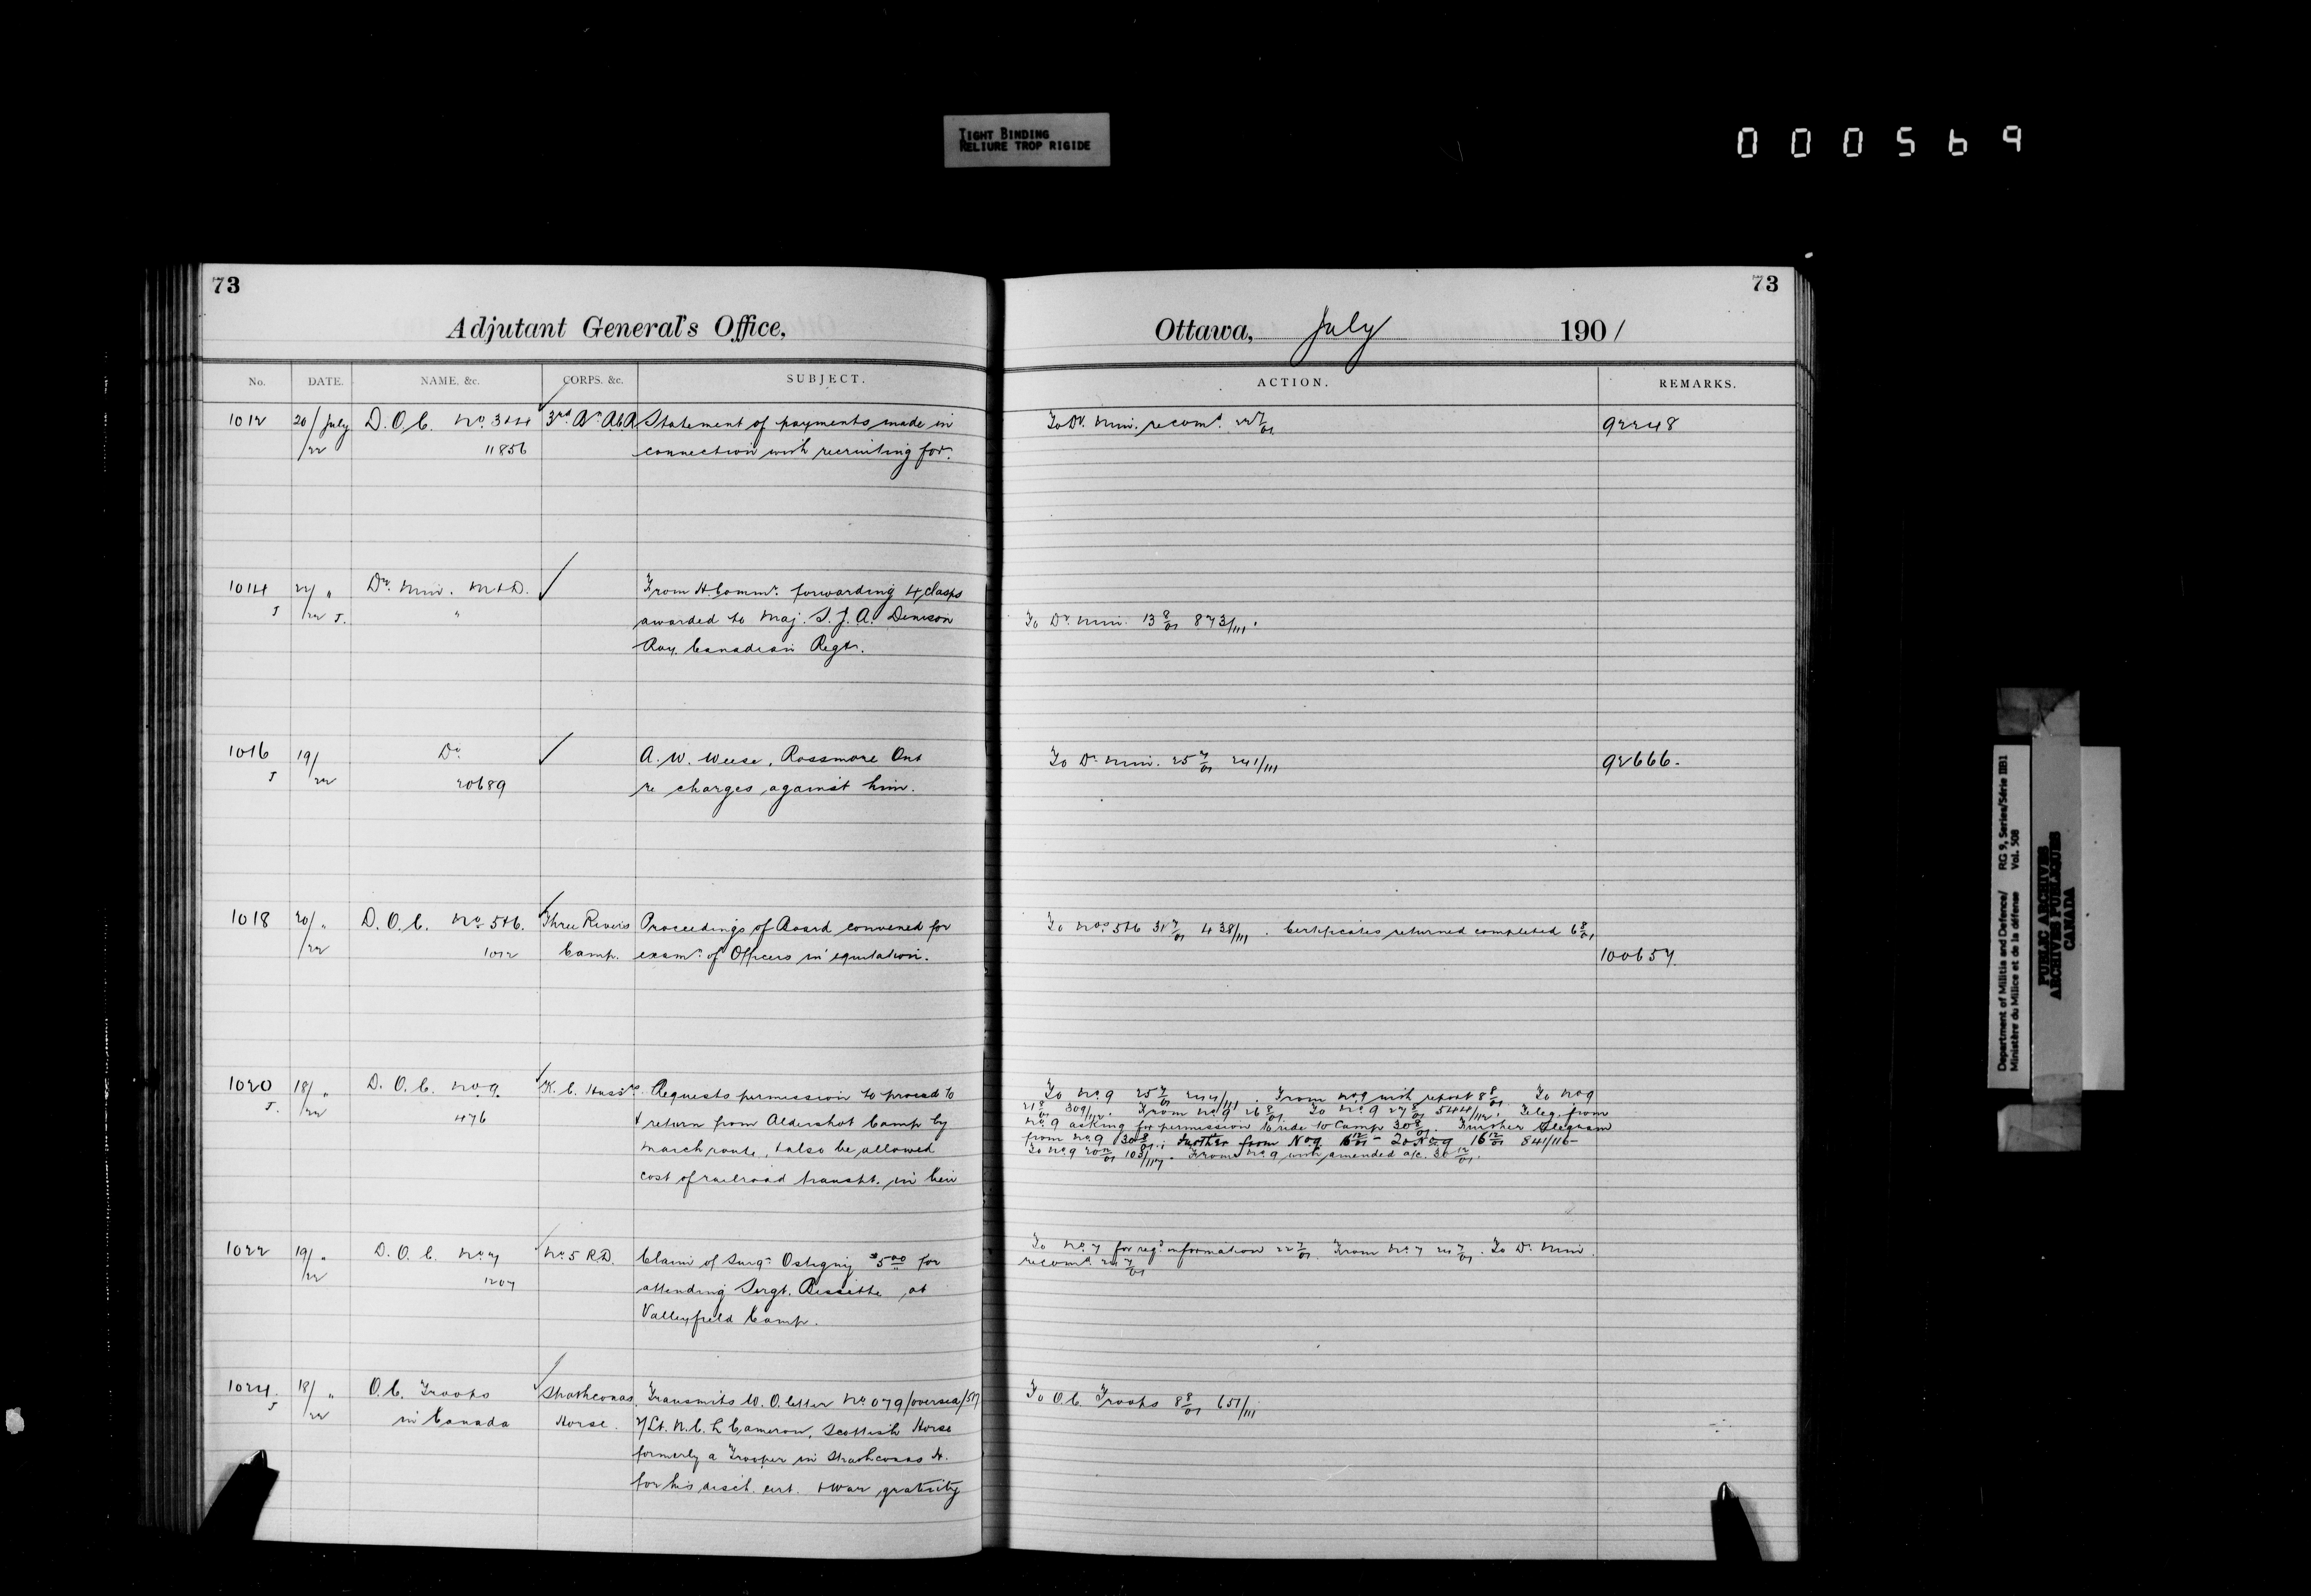 TIGHT BINDING
RELIURE TROP RIGIDE
000569
73
Adjutant General's Office,
No. DATE. NAME, &c. CORPS. &c. SUBJECT.
1012 20/July D.O.C. No. 3&4 3rd Bn. Statement of payments made in
/22 11856 connection with recruiting for.
1014 22/ " Dy. Min. M&D. From H. Commr. forwarding 4 clasps
J /22 J. " awarded to Maj. S.J.A. Denison
Roy. Canadian Regt.
1016 19/ Do. A.W. Weese, Rossmore Ont
J /22 20689 re charges against him.
1018 20/ " D.O.C. No. 5&6. Three Rivers Proceedings of Board convened for
/22 1012 Camp. examn. of Officers in equitation.
1020 18/ " D.O.C. No 9. K.C. Hussrs. Requests permission to proceed to
J. /22 476 & return from Aldershot Camp by
march route, & also be allowed
cost of railroad transpt. in lieu
1022 19/ " D.O.C. No 7 No. 5 R.D. Claim of Surgn. Ostigny $5.00 for
/22 1207 attending Sergt. at
Valleyfield Camp.
1024 18/ " O.C. Troops Strathconas Transmits W.O. letter No. 079/oversea/
J /22 in Canada Horse. Lt. N.C. L Cameron, Scottish Horse
formerly a Trooper in Strathconas H.
for his disch. cert. & war gratuity
73
Ottawa, July 1901
ACTION. REMARKS.
To Dy. Min. recomd. 22 7/01 92248
To Dy. Min. 13 8/01 873/111.
To Dy. Min. 25 7/01 241/111 92666.
To Nos. 5&6 31 7/01 438/111. Certificates returned completed 6 8/01
100657.
To No. 9 25 7/01 244/111. From No 9 with report 8 8/01. To No 9
21 8/01 309/112. From No. 9 26 8/01 To No. 9 27 8/01 544/112. Teleg. from
No. 9 asking for permission to ride to Camp 30 8/01. Further telegram
from No. 9 30 8/01. Further from No. 9 16 12/01 841/116-
To No. 9 20 12/01 103/117. From No. 9 with amended a/c. 30 12/01.
To No. 7 for reqd. information 22 7/01 From No. 7 24 7/01. To Dy. Min.
recomd. 24 7/01
To O.C. Troops 8 8/01 651/111
Department of Militia and Defence/ RG 9, Series/Série IIB1
Ministère du Milice et de la défense Vol. 508
PUBLIC ARCHIVES
ARCHIVES PUBLIQUES
CANADA